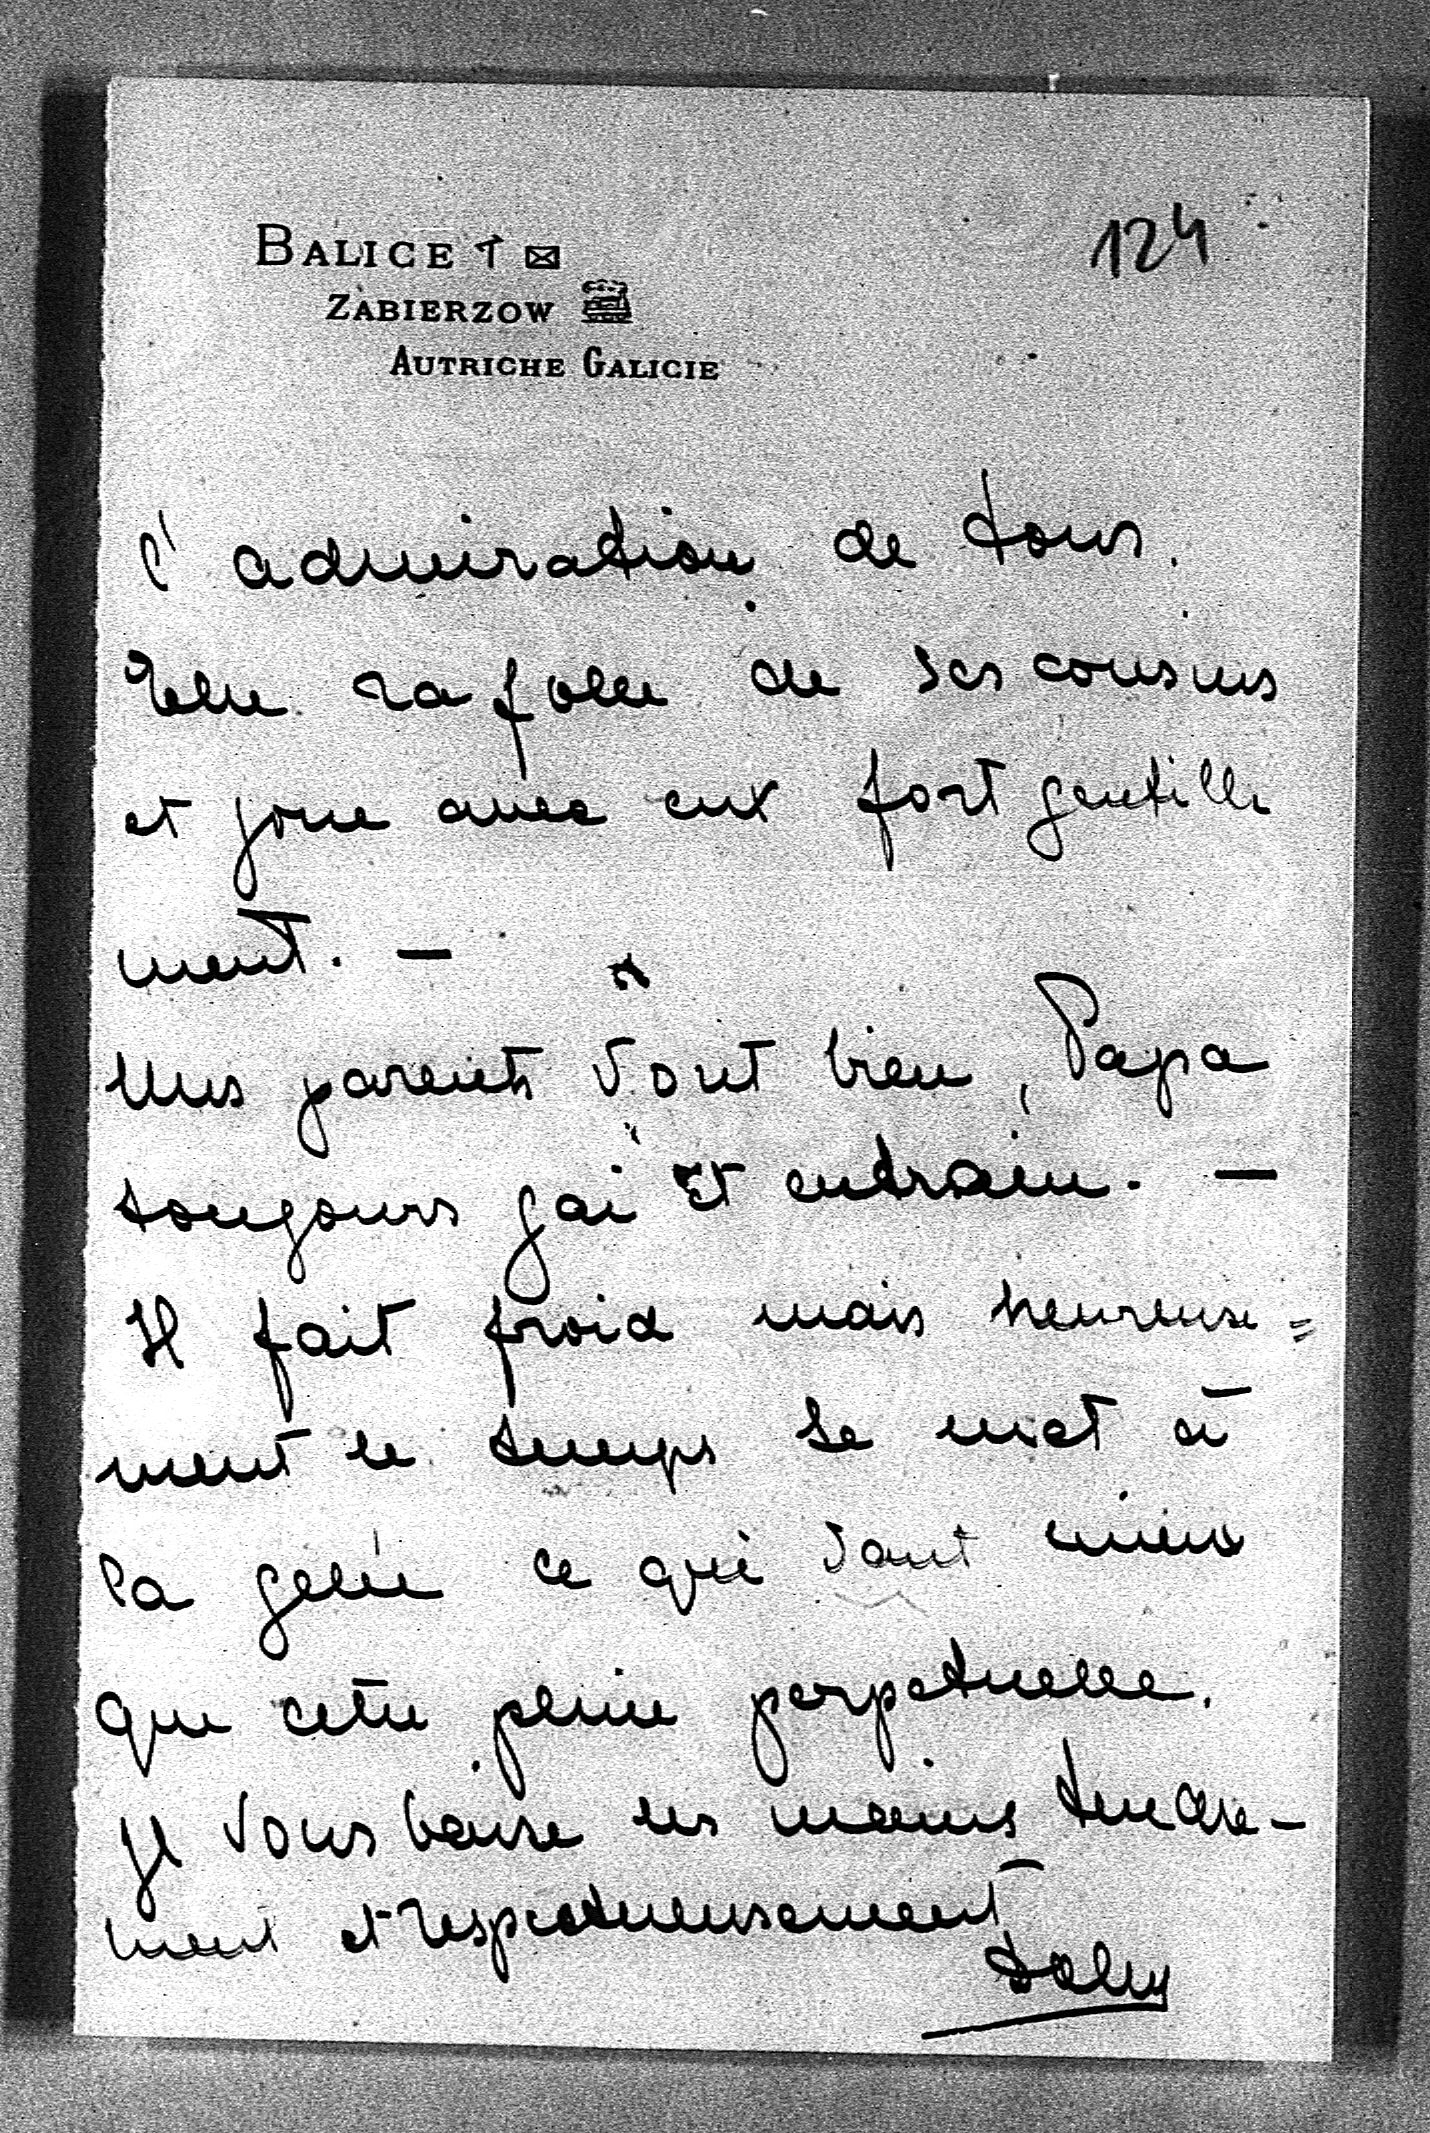 BALICE
124
ZABIERZOW
AUTRICHE GALICIE
l'admiration de tous.
Elle rafolle de ses cousins
et joue avec eux fort gentille
ment. —
Mes parents vont bien, Papa
toujours gai et entrain. —
Il fait froid mais heureuse=
ment le temps se met à
la gelée ce qui vaut mieux
que cette pluie perpetuelle.
Je vous baise les mains tendre-
ment et respectueusement